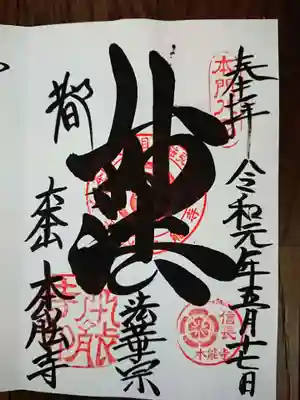 奉拝 令和元年五月七日
妙法
法華宗
都
大本山 本能寺
信長
本能寺